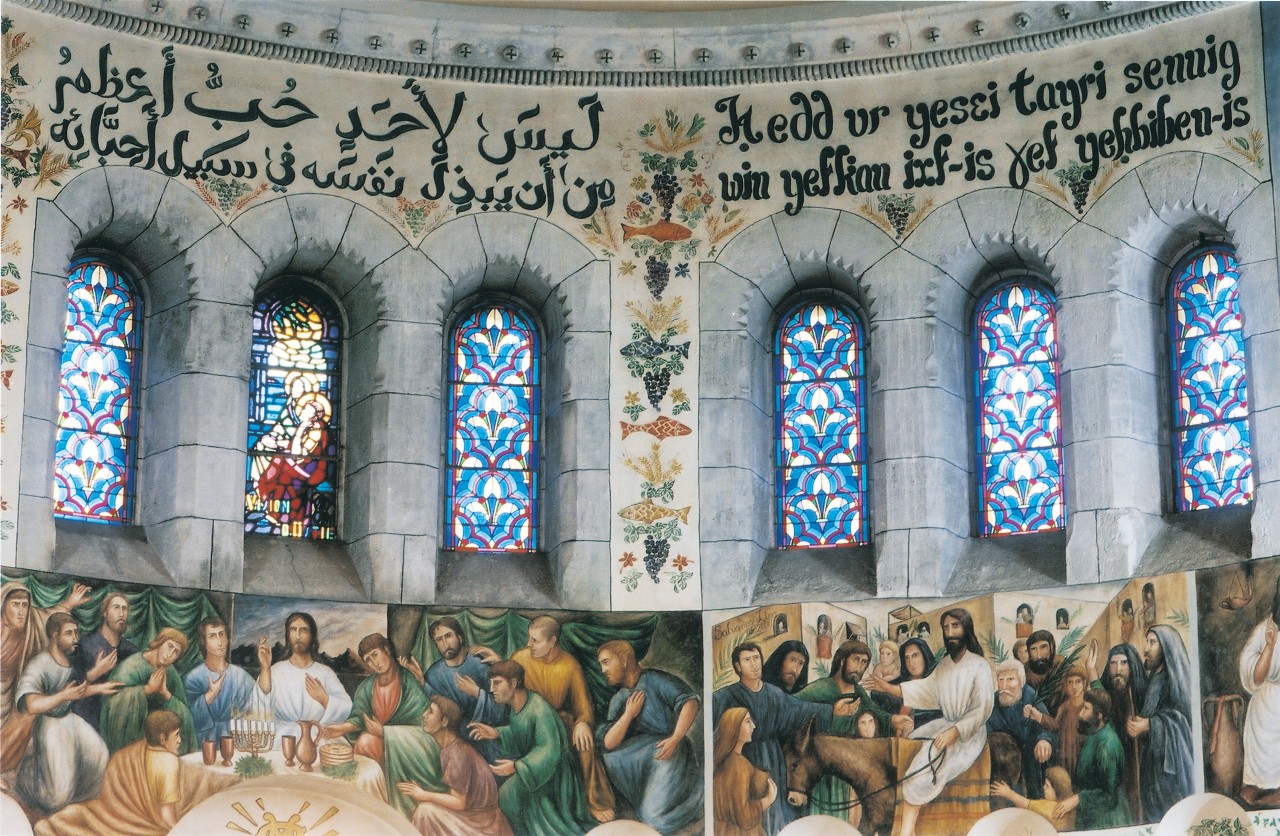 لَيسَ لأَحَدٍ حُبٌّ أَعظَمُ
مِن أَن يَبذِلَ نَفسَه في سَبيلِ أَحِبَّائِه
Ḥedd ur yesɛi tayri sennig
win yefkan ixf-is ɣef yeḥbiben-is